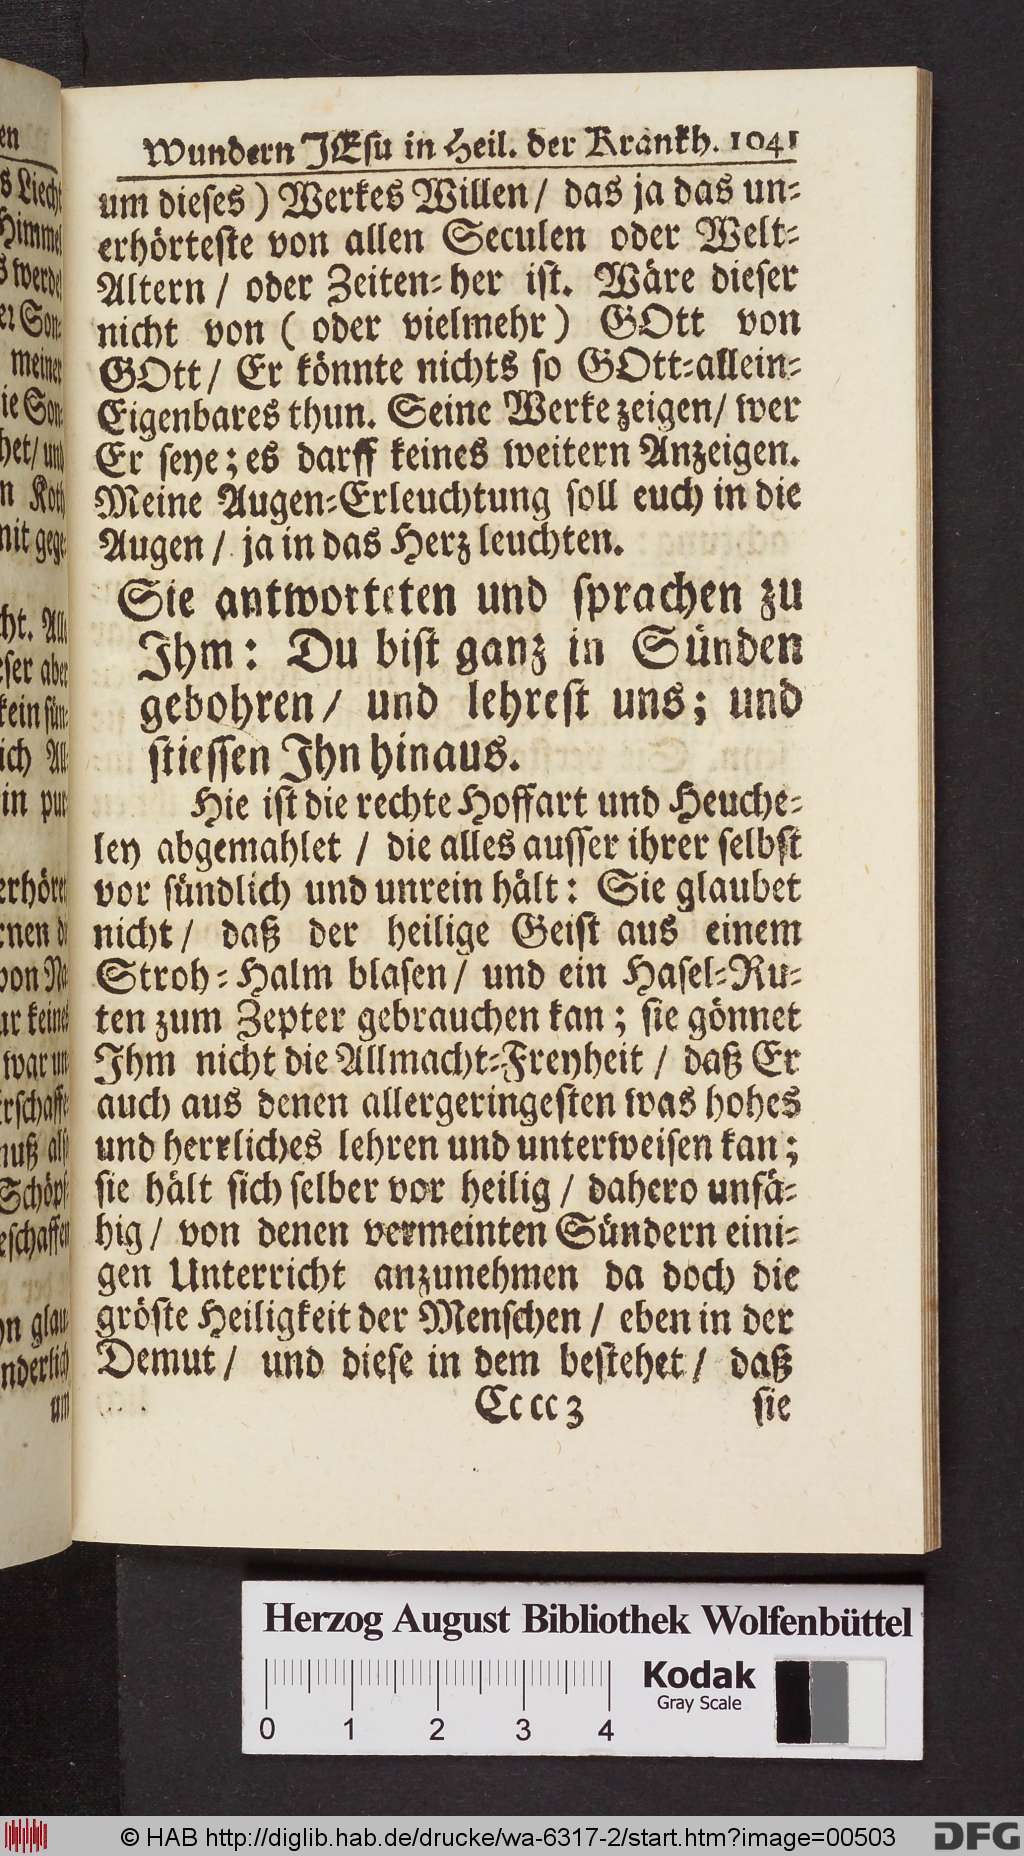 Wundern JEsu in Heil. der Kränkh. 1041
um dieses) Werkes Willen / das ja das un-
erhörteste von allen Seculen oder Welt-
Altern / oder Zeiten-her ist. Wäre dieser
nicht von ( oder vielmehr ) GOtt von
GOtt / Er könnte nichts so GOtt-allein-
Eigenbares thun. Seine Werke zeigen / wer
Er seye; es darff keines weitern Anzeigen.
Meine Augen-Erleuchtung soll euch in die
Augen / ja in das Herz leuchten.
Sie antworteten und sprachen zu
Ihm: Du bist ganz in Sünden
gebohren / und lehrest uns; und
stiessen Ihn hinaus.
Hie ist die rechte Hoffart und Heuche-
ley abgemahlet / die alles ausser ihrer selbst
vor sündlich und unrein hält: Sie glaubet
nicht / daß der heilige Geist aus einem
Stroh-Halm blasen / und ein Hasel-Ru-
ten zum Zepter gebrauchen kan; sie gönnet
Ihm nicht die Allmacht-Freyheit / daß Er
auch aus denen allergeringesten was hohes
und herrliches lehren und unterweisen kan;
sie hält sich selber vor heilig / dahero unfä-
hig / von denen vermeinten Sündern eini-
gen Unterricht anzunehmen da doch die
gröste Heiligkeit der Menschen / eben in der
Demut / und diese in dem bestehet / daß
Cc cc 3 sie
Herzog August Bibliothek Wolfenbüttel
Kodak
Gray Scale
0 1 2 3 4
© HAB http://diglib.hab.de/drucke/wa-6317-2/start.htm?image=00503
DFG